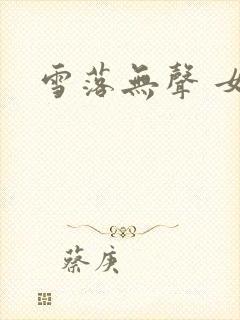 雪落無聲
蔡庚